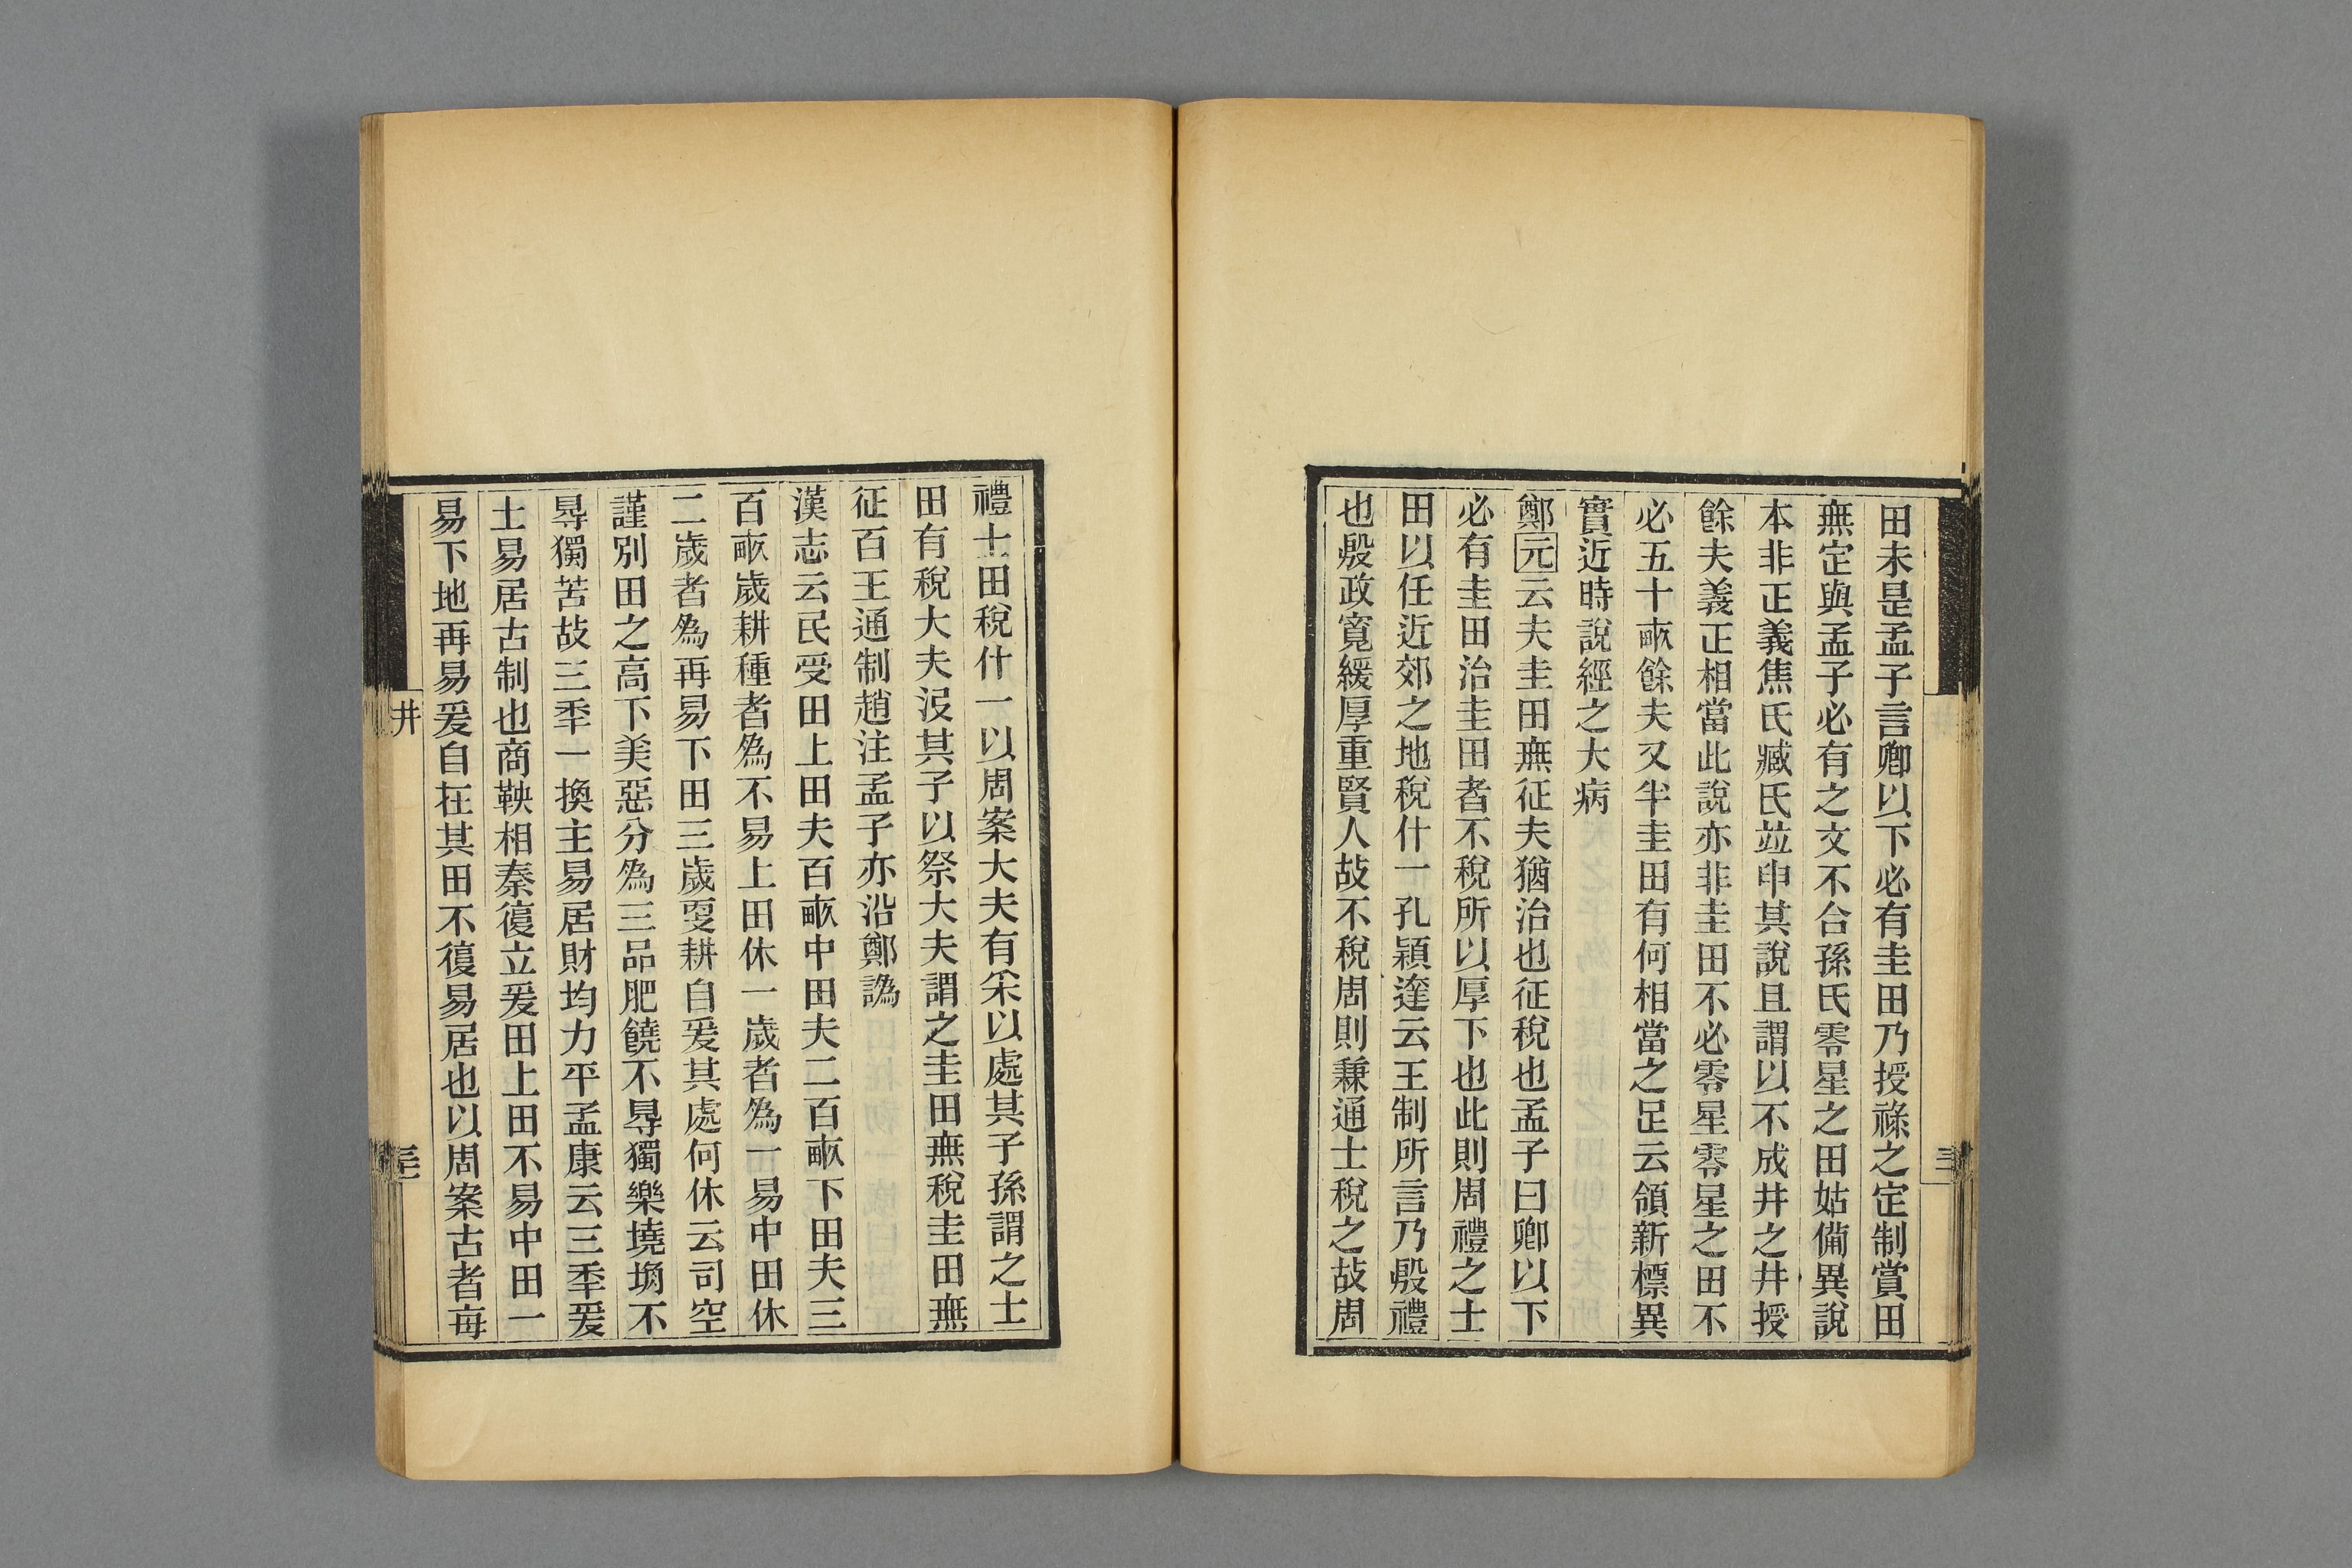 田未是孟子言卿以下必有圭田乃授祿之定制賞田
無定與孟子必有之文不合孫氏零星之田姑備異說
本非正義焦氏臧氏竝申其說且謂以不成井之井授
餘夫義正相當此說亦非圭田不必零星零星之田不
必五十畝餘夫又半圭田有何相當之足云領新標異
實近時說經之大病
鄭元云夫圭田無征夫猶治也征稅也孟子曰卿以下
必有圭田治圭田者不稅所以厚下也此則周禮之士
田以任近郊之地稅什一孔穎達云王制所言乃殷禮
也殷政寬緩厚重賢人故不稅周則兼通士稅之故周
禮士田稅什一以周案大夫有采以處其子孫謂之士
田有稅大夫沒其子以祭大夫謂之圭田無稅圭田無
征百王通制趙注孟子亦沿鄭譌
漢志云民受田上田夫百畝中田夫二百畝下田夫三
百畝歲耕種者為不易上田休一歲者為一易中田休
二歲者為再易下田三歲更耕自爰其處何休云司空
謹別田之高下美惡分為三品肥饒不㝵獨樂墝埆不
㝵獨苦故三秊一換主易居財均力平孟康云三秊爰
土易居古制也商鞅相秦復立爰田上田不易中田一
易下地再易爰自在其田不復易居也以周案古者每
井